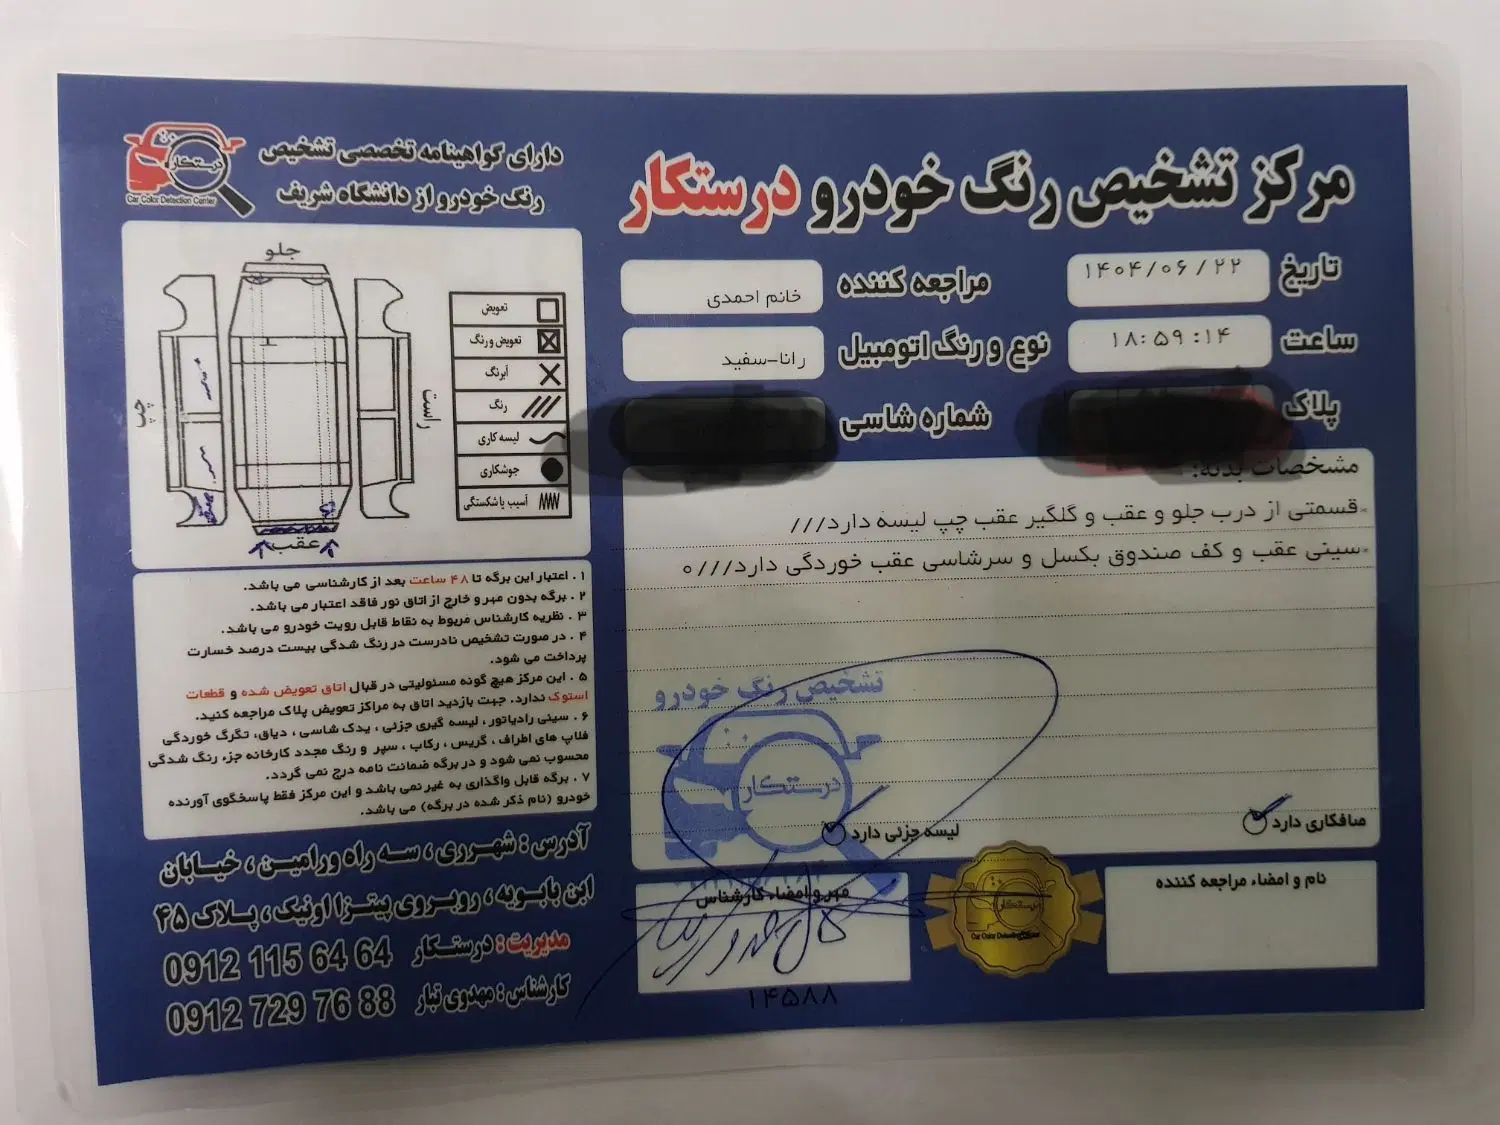 مرکز تشخیص رنگ خودرو درستکار
دارای گواهینامه تخصصی تشخیص
رنگ خودرو از دانشگاه شریف
درستکار
Car Color Detection Center
تاریخ ۱۴۰۴/۰۶/۲۲
مراجعه کننده خانم احمدی
ساعت ۱۸:۵۹:۱۴
نوع و رنگ اتومبیل رانا-سفید
پلاک
شماره شاسی
مشخصات بدنه:
-قسمتی از درب جلو و عقب و گلگیر عقب چپ لیسه دارد///
-سینی عقب و کف صندوق بکسل و سرشاسی عقب خوردگی دارد///۰
تشخیص رنگ خودرو
درستکار
صافکاری دارد
لیسه جزئی دارد
نام و امضاء مراجعه کننده
مهر و امضاء کارشناس
درستکار
Car Color Detection Center
۱۴۵۸۸
جلو
چپ
راست
عقب
تعویض
تعویض و رنگ
آبرنگ
رنگ
لیسه کاری
جوشکاری
آسیب یا شکستگی
۱. اعتبار این برگه تا ۴۸ ساعت بعد از کارشناسی می باشد.
۲. برگه بدون مهر و خارج از اتاق نور فاقد اعتبار می باشد.
۳. نظریه کارشناس مربوط به نقاط قابل رویت خودرو می باشد.
۴. در صورت تشخیص نادرست در رنگ شدگی بیست درصد خسارت
پرداخت می شود.
۵. این مرکز هیچ گونه مسئولیتی در قبال اتاق تعویض شده و قطعات
استوک ندارد. جهت بازدید اتاق به مراکز تعویض پلاک مراجعه کنید.
۶. سینی رادیاتور، لیسه گیری جزئی، یدک شاسی، دیاق، تگرگ خوردگی
فلاپ های اطراف، گریس، رکاب، سپر و رنگ مجدد کارخانه جزء رنگ شدگی
محسوب نمی شود و در برگه ضمانت نامه درج نمی گردد.
۷. برگه قابل واگذاری به غیر نمی باشد و این مرکز فقط پاسخگوی آورنده
خودرو (نام ذکر شده در برگه) می باشد.
آدرس: شهرری، سه راه ورامین، خیابان
ابن بابویه، روبروی پیتزا اونیک، پلاک ۴۵
مدیریت: درستکار 0912 115 64 64
کارشناس: مهدوی تبار 0912 729 76 88